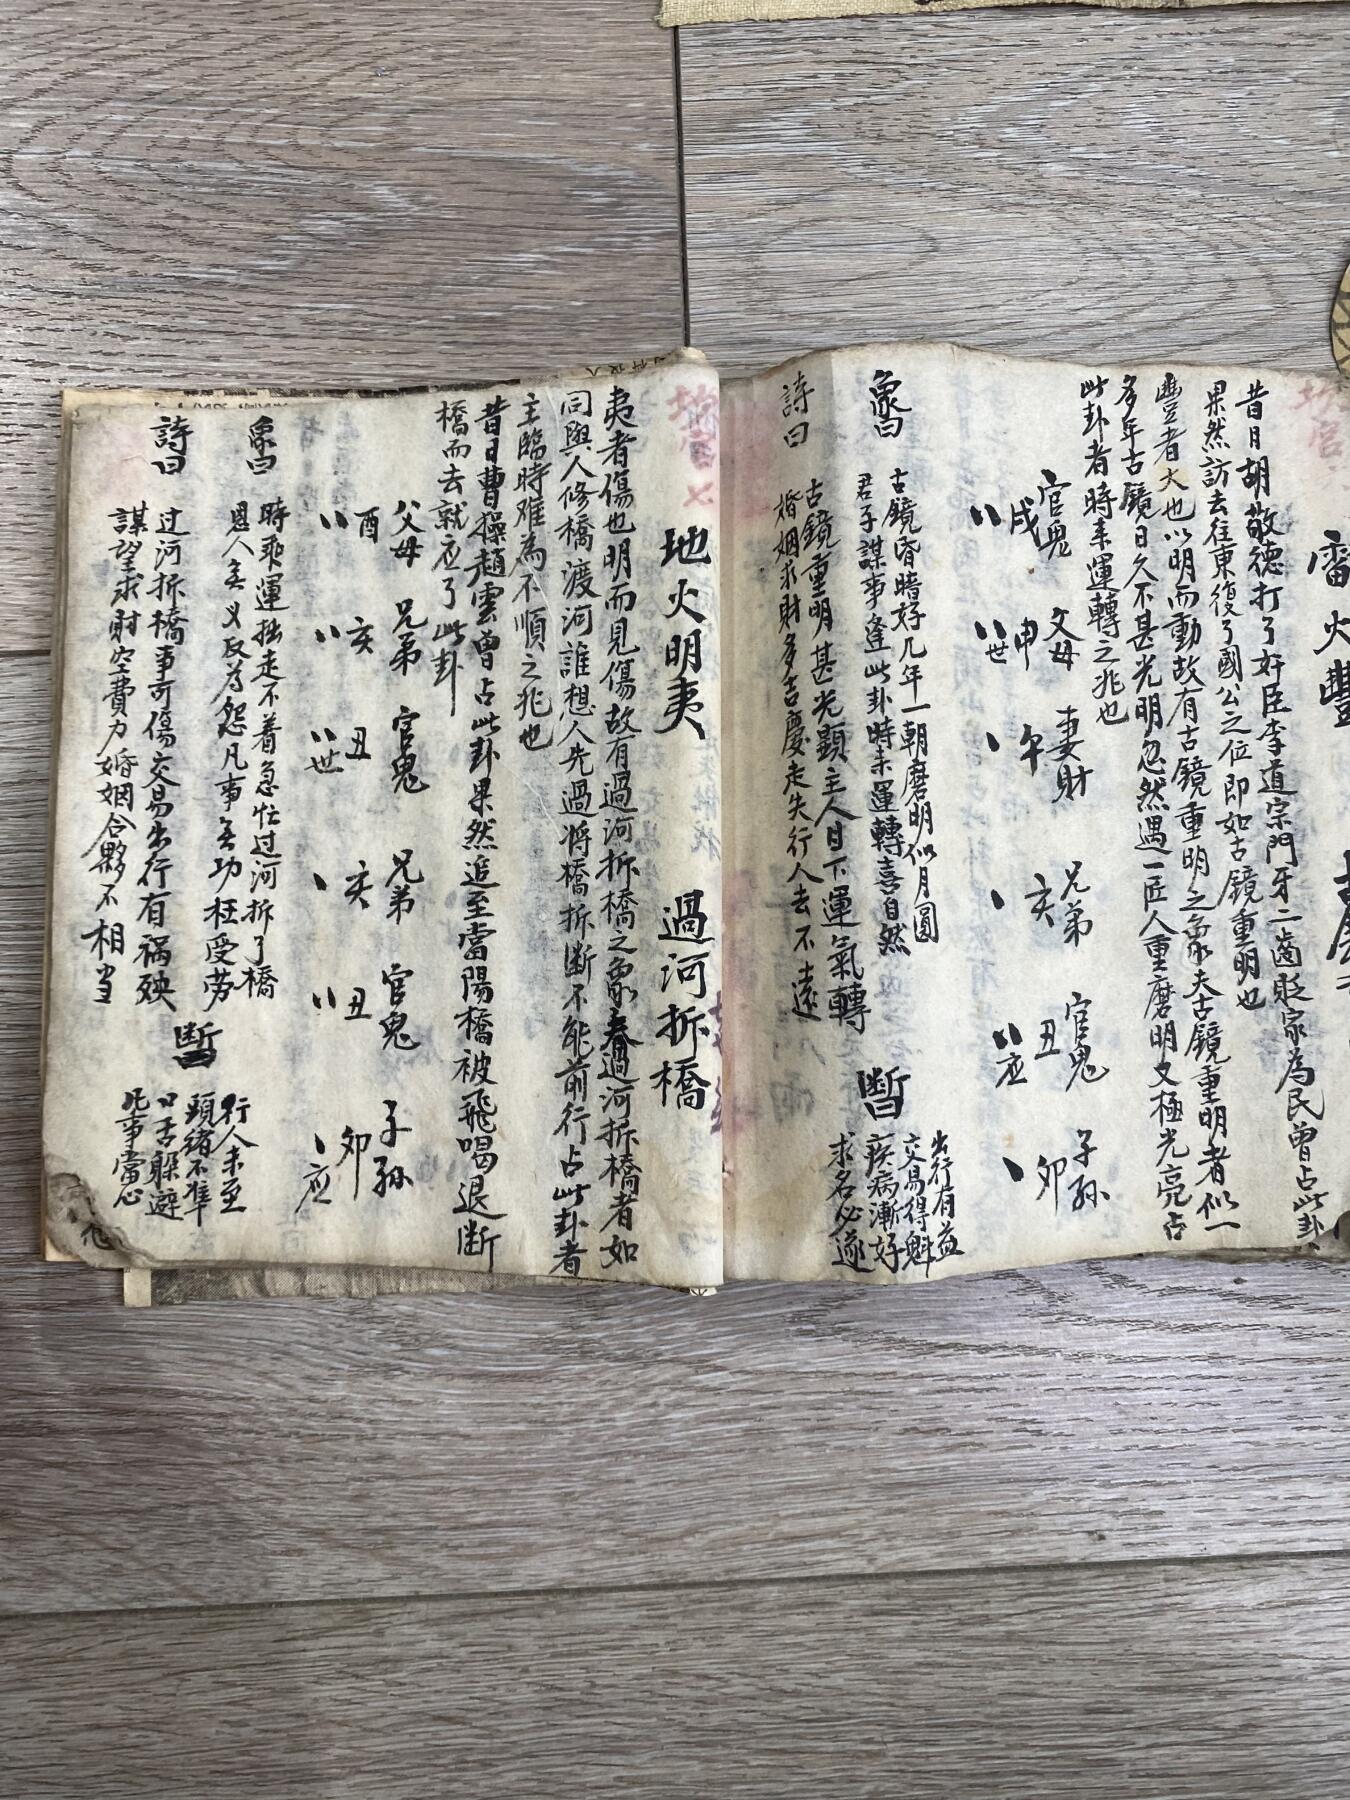 坎宮
雷火豐
昔日胡敬德打了奸臣李道宗門牙二齒貶家為民曾占此卦
果然訪去往東復了國公之位即如古鏡重明也
豐者大也以明而動故有古鏡重明之象夫古鏡重明者似一
多年古鏡日久不甚光明忽然遇一匠人重磨明又極光亮占
此卦者時來運轉之兆也
官鬼 父母 妻財 兄弟 官鬼 子孫
戌 申 午 亥 丑 卯
世 應
象曰
古鏡昏暗好几年一朝磨明似月圓
君子謀事逢此卦時來運轉喜自然
斷曰
出行有益
交易得魁
疾病漸好
求名必遂
詩曰
古鏡重明甚光顯主人日下運氣轉
婚姻求財多吉慶走失行人去不遠
坎宮七
地火明夷 過河拆橋
夷者傷也明而見傷故有過河拆橋之象夫過河拆橋者如
同與人修橋渡河誰想人先過将橋拆断不能前行占此卦者
主臨時难為不順之兆也
昔日曹操趙雲曾占此卦果然追至當陽橋被飛喝退断
橋而去就应了此卦
父母 兄弟 官鬼 兄弟 官鬼 子孫
酉 亥 丑 亥 丑 卯
世 应
象曰
時乖運拙走不着急忙过河拆了橋
恩人无义反為怨凡事无功枉受劳
斷曰
行人未至
頭緒不準
口舌躲避
凡事當心
詩曰
过河拆橋事可傷交易出行有禍殃
謀望求財空費力婚姻合夥不相当